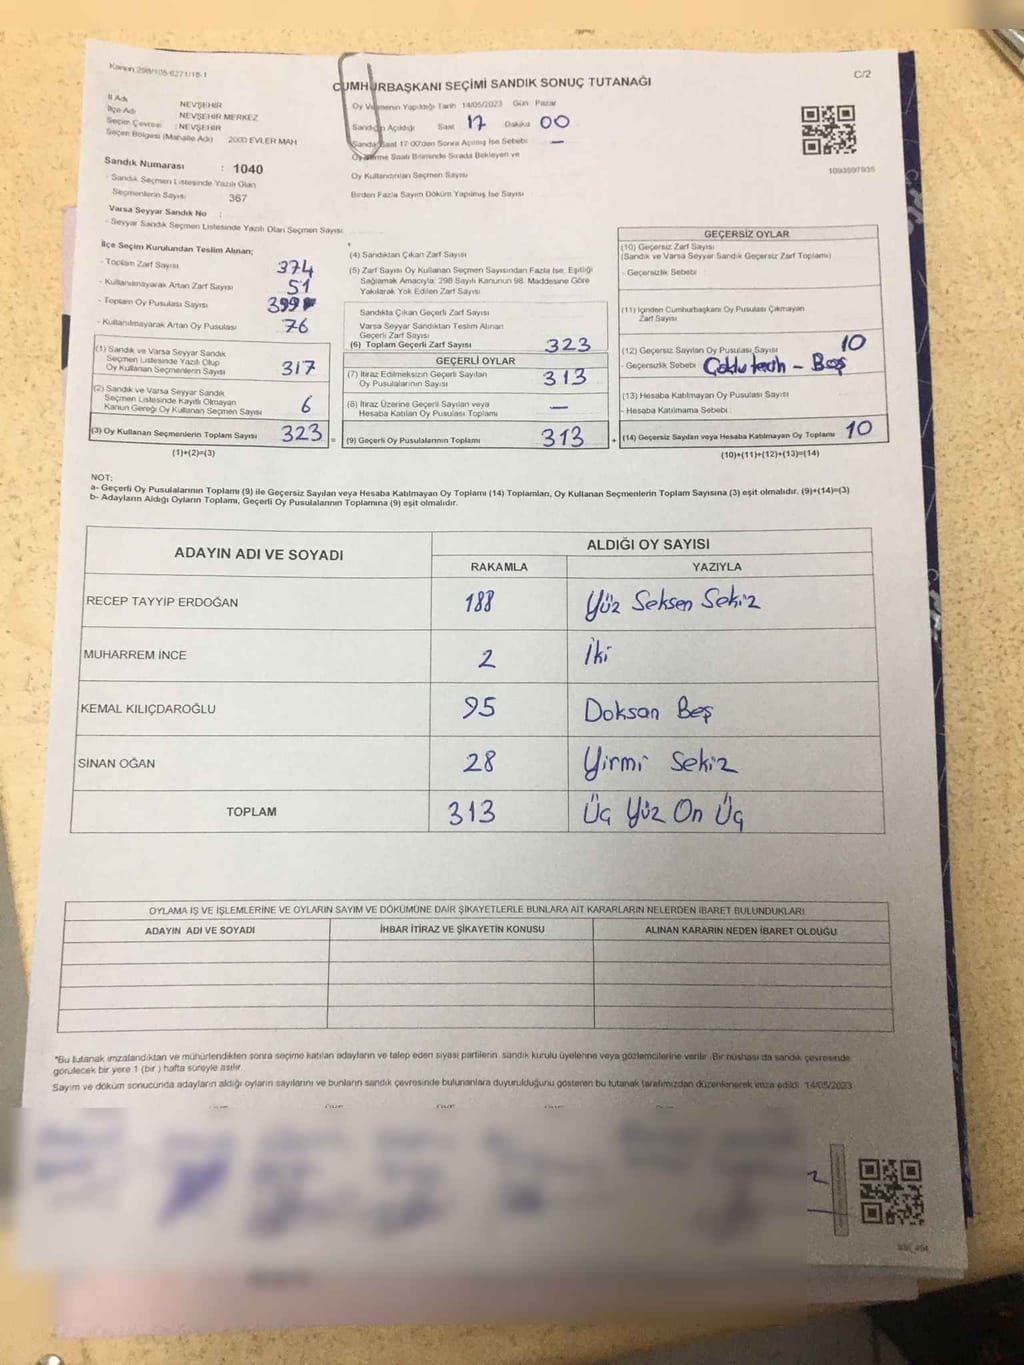 Kanun 298/105-6271/18-1
CUMHURBAŞKANI SEÇİMİ SANDIK SONUÇ TUTANAĞI
C/2
İl Adı NEVŞEHİR
İlçe Adı NEVŞEHİR MERKEZ
Seçim Çevresi : NEVŞEHİR
Seçen Bölgesi (Mahalle Adı) 2000 EVLER MAH
Oy Vermenin Yapıldığı Tarih 14/05/2023 Gün Pazar
Sandığın Açıldığı Saat 17 Dakika 00
Sandık Saat 17:00'den Sonra Açılmış İse Sebebi —
Oy Verme Saati Bitiminde Sırada Bekleyen ve
Oy Kullandırılan Seçmen Sayısı
Birden Fazla Sayım Döküm Yapılmış İse Sayısı
1093997935
Sandık Numarası : 1040
- Sandık Seçmen Listesinde Yazılı Olan
Seçmenlerin Sayısı 367
Varsa Seyyar Sandık No :
- Seyyar Sandık Seçmen Listesinde Yazılı Olan Seçmen Sayısı
İlçe Seçim Kurulundan Teslim Alınan;
- Toplam Zarf Sayısı 374
- Kullanılmayarak Artan Zarf Sayısı 51
- Toplam Oy Pusulası Sayısı 399
- Kullanılmayarak Artan Oy Pusulası 76
(1) Sandık ve Varsa Seyyar Sandık
Seçmen Listesinde Yazılı Olup
Oy Kullanan Seçmenlerin Sayısı 317
(2) Sandık ve Varsa Seyyar Sandık
Seçmen Listesinde Kayıtlı Olmayan
Kanun Gereği Oy Kullanan Seçmen Sayısı 6
(3) Oy Kullanan Seçmenlerin Toplam Sayısı 323 =
(1)+(2)=(3)
(4) Sandıktan Çıkan Zarf Sayısı
(5) Zarf Sayısı Oy Kullanan Seçmen Sayısından Fazla İse, Eşitliği
Sağlamak Amacıyla; 298 Sayılı Kanunun 98. Maddesine Göre
Yakılarak Yok Edilen Zarf Sayısı
Sandıkta Çıkan Geçerli Zarf Sayısı
Varsa Seyyar Sandıktan Teslim Alınan
Geçerli Zarf Sayısı
(6) Toplam Geçerli Zarf Sayısı 323
GEÇERLİ OYLAR
(7) İtiraz Edilmeksizin Geçerli Sayılan
Oy Pusulalarının Sayısı 313
(8) İtiraz Üzerine Geçerli Sayılan veya
Hesaba Katılan Oy Pusulası Toplamı —
(9) Geçerli Oy Pusulalarının Toplamı 313 +
GEÇERSİZ OYLAR
(10) Geçersiz Zarf Sayısı
(Sandık ve Varsa Seyyar Sandık Geçersiz Zarf Toplamı)
- Geçersizlik Sebebi :
(11) İçinden Cumhurbaşkanı Oy Pusulası Çıkmayan
Zarf Sayısı
(12) Geçersiz Sayılan Oy Pusulası Sayısı 10
- Geçersizlik Sebebi Çoklu tercih - Boş
(13) Hesaba Katılmayan Oy Pusulası Sayısı
- Hesaba Katılmama Sebebi :
(14) Geçersiz Sayılan veya Hesaba Katılmayan Oy Toplamı 10
(10)+(11)+(12)+(13)=(14)
NOT:
a- Geçerli Oy Pusulalarının Toplamı (9) ile Geçersiz Sayılan veya Hesaba Katılmayan Oy Toplamı (14) Toplamları, Oy Kullanan Seçmenlerin Toplam Sayısına (3) eşit olmalıdır. (9)+(14)=(3)
b- Adayların Aldığı Oyların Toplamı, Geçerli Oy Pusulalarının Toplamına (9) eşit olmalıdır.
ADAYIN ADI VE SOYADI ALDIĞI OY SAYISI
RAKAMLA YAZIYLA
RECEP TAYYİP ERDOĞAN 188 Yüz Seksen Sekiz
MUHARREM İNCE 2 İki
KEMAL KILIÇDAROĞLU 95 Doksan Beş
SİNAN OĞAN 28 Yirmi Sekiz
TOPLAM 313 Üç Yüz On Üç
OYLAMA İŞ VE İŞLEMLERİNE VE OYLARIN SAYIM VE DÖKÜMÜNE DAİR ŞİKAYETLERLE BUNLARA AİT KARARLARIN NELERDEN İBARET BULUNDUKLARI
ADAYIN ADI VE SOYADI İHBAR İTİRAZ VE ŞİKAYETİN KONUSU ALINAN KARARIN NEDEN İBARET OLDUĞU
*Bu tutanak imzalandıktan ve mühürlendikten sonra seçime katılan adayların ve talep eden siyasi partilerin, sandık kurulu üyelerine veya gözlemcilerine verilir. Bir nüshası da sandık çevresinde
görülecek bir yere 1 (bir) hafta süreyle asılır.
Sayım ve döküm sonucunda adayların aldığı oyların sayılarını ve bunların sandık çevresinde bulunanlara duyurulduğunu gösteren bu tutanak tarafımızdan düzenlenerek imza edildi. 14/05/2023